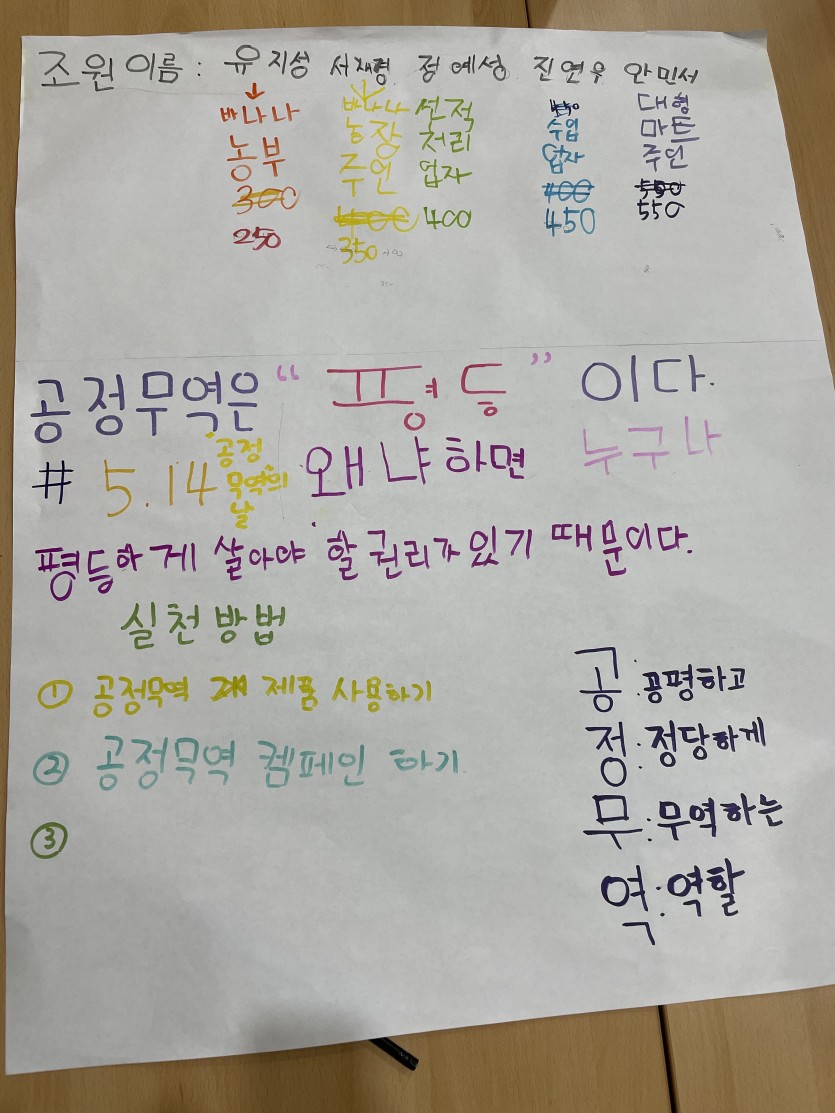 조원이름: 유지성 서재경 정예성 진연우 안민서
바나나 바나나 선적 수입 대형
농부 농장 처리 업자 마트
300 주인 업자 400 주인
250 400 400 450 550
350 550
공정무역은 “평등”이다.
# 5.14 "공정무역의 날" 왜냐하면 누구나
평등하게 살아야 할 권리가 있기 때문이다.
실천방법
① 공정무역 제품 사용하기
② 공정무역 켐페인 하기
③
공: 공평하고
정: 정당하게
무: 무역하는
역: 역할